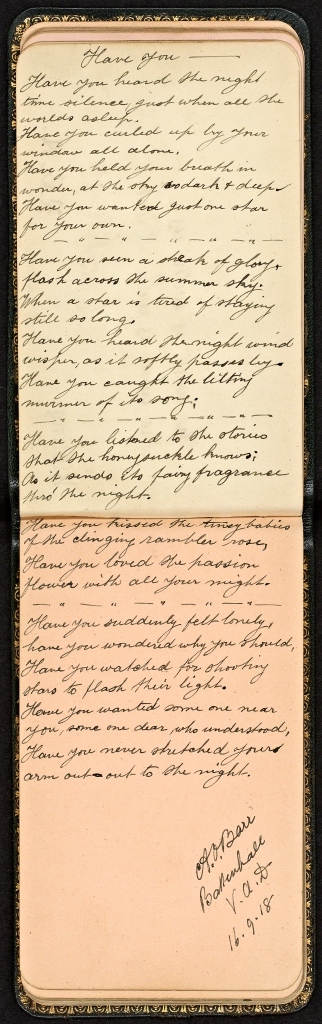 Have you —
Have you heard the night
time silence, just when all the
worlds asleep.
Have you curled up by your
window all alone.
Have you held your breath in
wonder, at the sky so dark & deep.
Have you wanted just one star
for your own.
— " — " — " — " — " —
Have you seen a streak of glory,
flash across the summer sky.
When a star is tired of staying
still so long.
Have you heard the night wind
wisper, as it softly passes by.
Have you caught the lilting
murmer of its song;
— " — " — " — " — " —
Have you listened to the stories
that the honeysuckle knows;
As it sends its fairy fragrance
thro' the night.
Have you kissed the tiney babies
of the clinging rambler rose,
Have you loved the passion
flower with all your might.
— " — " — " — " — " —
Have you suddenly felt lonely,
have you wondered why you should,
Have you watched for shooting
stars to flash their light.
Have you wanted some one near
you, some one dear, who understood,
Have you never stretched yours
arm out-out to the night.
Barr
V.A.D
16.9.18